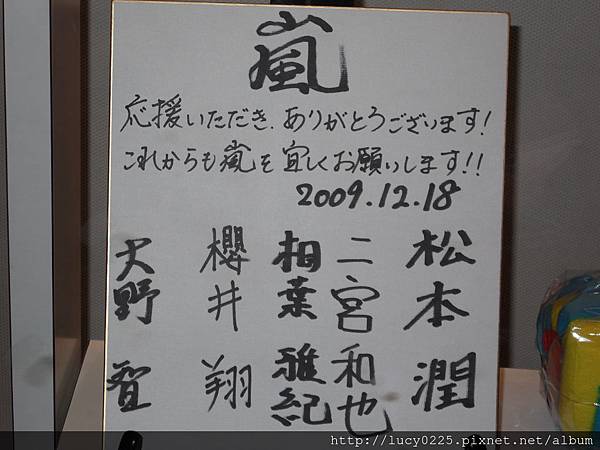 嵐
応援いただき、ありがとうございます!
これからも嵐を宜しくお願いします!!
2009.12.18
松本 潤
二宮 和也
相葉 雅紀
櫻井 翔
大野 智
http://lucy0225.pixnet.net/album